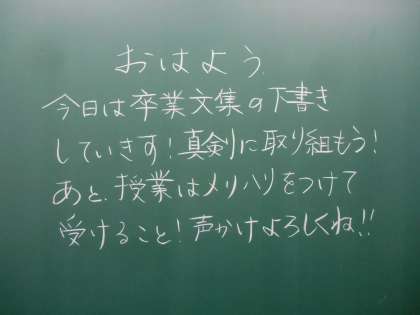 おはよう
今日は卒業文集の下書き
していきす！真剣に取り組もう！
あと、授業はメリハリをつけて
受けること！声かけよろしくね!!